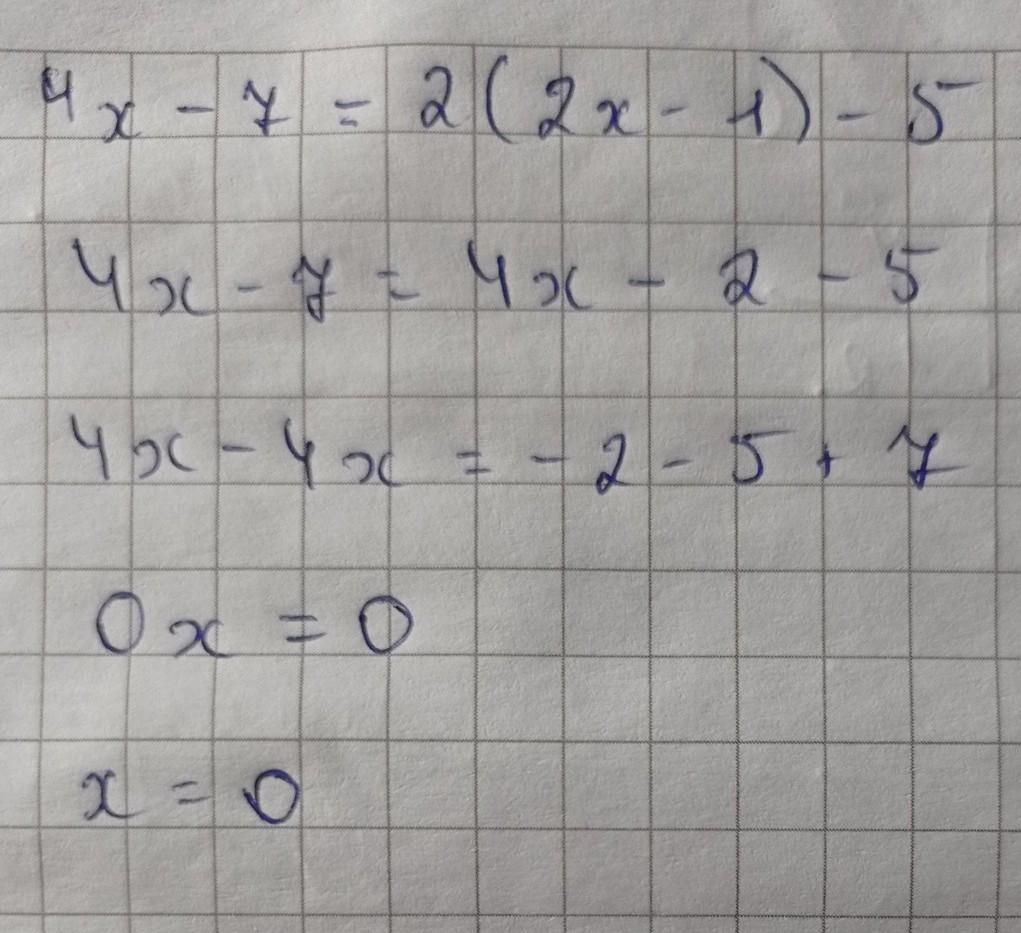 4x - 7 = 2(2x - 1) - 5
4x - 7 = 4x - 2 - 5
4x - 4x = - 2 - 5 + 7
0x = 0
x = 0